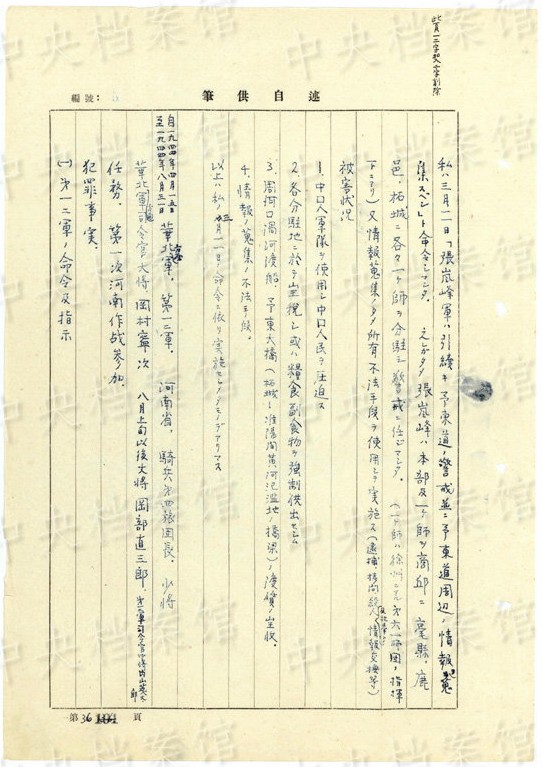 此頁一三字改二字削除
編號：
筆供自述
私ハ三月一日「張嵐峰軍ハ引續キ予東道ノ警戒並ニ予東道周辺ノ情報蒐
集スベシ」ト命令シマシタ。之ガタメ張嵐峰ハ本部及一ケ師ヲ商邱ニ亳縣，鹿
邑，柘城ニ各々一ケ師ヲ分駐シ警戒ニ任ジマシタ。（一ケ師ハ徐州ニテ第六五師団ノ指揮
下ニアリ）又情報蒐集ノタメ所有不法手段ヲ使用シテ実施ス（逮捕，拷問，殺人，情報交換等）
被害状況
1．中国人軍隊ヲ使用シ中国人民ヲ圧迫ス
2．各分駐地ニ於テ坐稅シ或ハ糧食副食物ヲ強制供出セシム
3．周家口渦河渡船，予東大橋（柘城－淮陽間黄河氾濫地ノ橋梁）ノ渡賃ノ坐收．
4．情報ノ蒐集ノ不法手段．
以上ハ私ノ三月一日ノ命令ニ依リ実施セシメタモノデアリマス
自一九四四年四月一五日
至一九四四年八月三一日
華北軍，第一二軍．河南省，騎兵第四旅団長．少將
華北軍司令官大将 岡村寧次 八月上旬以後大将 岡部直三郎．
任務．第一次河南作战参加．
犯罪事実．
(一) 第一二軍ノ命令及指示
第 36 頁
中央档案馆